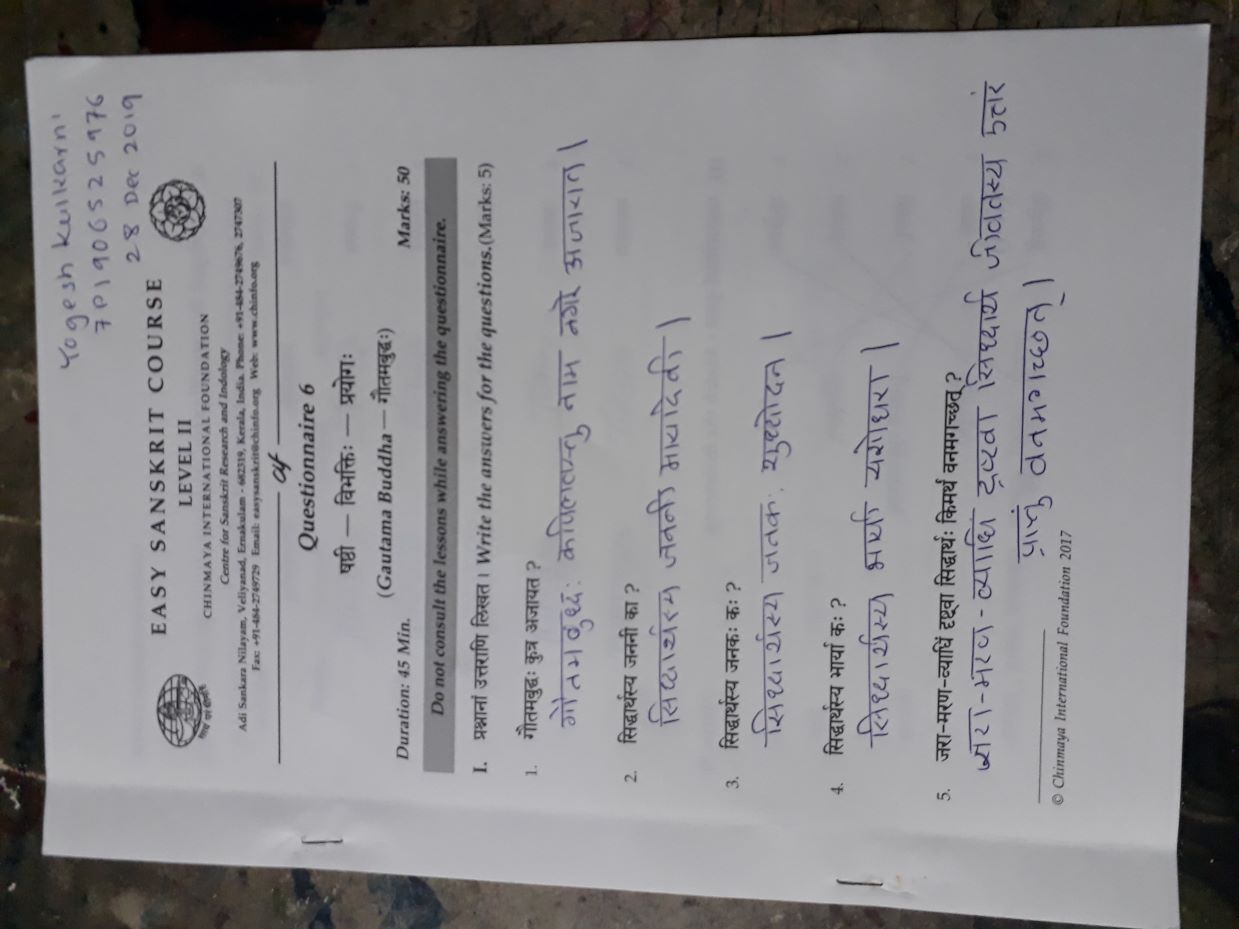 Yogesh Kulkarni
7P1906525976
28 Dec 2019
EASY SANSKRIT COURSE
LEVEL II
CHINMAYA INTERNATIONAL FOUNDATION
Centre for Sanskrit Research and Indology
Adi Sankara Nilayam, Veliyanad, Ernakulam - 682319, Kerala, India. Phone: +91-484-2749676, 2747307
Fax: +91-484-2749729 Email: easysanskrit@chinfo.org Web: www.chinfo.org
Questionnaire 6
षष्ठी — विभक्तिः — प्रयोगः
(Gautama Buddha — गौतमबुद्धः)
Duration: 45 Min. Marks: 50
Do not consult the lessons while answering the questionnaire.
I. प्रश्नानां उत्तराणि लिखत । Write the answers for the questions.(Marks: 5)
1. गौतमबुद्धः कुत्र अजायत ?
गौतमबुध्दः कपिलवस्तु नाम नगरे अजायत ।
2. सिद्धार्थस्य जननी का ?
सिध्दार्थस्य जननी मायादेवी ।
3. सिद्धार्थस्य जनकः कः ?
सिध्दार्थस्य जनकः शुध्दोदन ।
4. सिद्धार्थस्य भार्या कः ?
सिध्दार्थस्य भार्या यशोधरा ।
5. जरा-मरण-व्याधिं दृष्ट्वा सिद्धार्थः किमर्थं वनमगच्छत् ?
जरा-मरण-व्याधिं द्रष्टवा सिध्दार्थ जीवतस्य उत्तरं
प्राप्तुं वनमगच्छत् ।
© Chinmaya International Foundation 2017